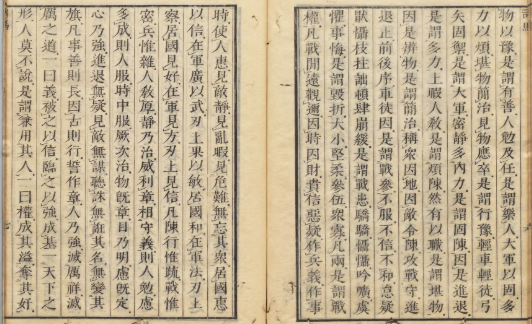 物以豫是謂有善人勉及任是謂樂人大軍以固多
力以煩堪物簡治見物應卒是謂行豫輕車輕徒弓
矢固禦是謂大軍密靜多內力是謂固陳因是進退
是謂多力上暇人教是謂煩陳然有以職是謂堪物
因是辨物是謂簡治稱眾因地因敵令陳攻戰守進
退止前後序車徒因是謂戰參不服不信不和怠疑
厭懾枝拄詘頓肆崩緩是謂戰患驕驕懾懾吟曠虞
懼事悔是謂毀折大小堅柔參伍眾寡凡兩是謂戰
權凡戰間遠觀邇因時因財貴信惡疑作兵義作事
時使人惠見敵靜見亂暇見危難無忘其眾居國惠
以信在軍廣以武刃上果以敏居國和在軍法刃上
察居國見好在軍見方刃上見信凡陳行惟疏戰惟
密兵惟雜人教厚靜乃治威利章相守義則人勉慮
多成則人服時中服厥次治物既章目乃明慮既定
心乃強進退無疑見敵無謀聽誅無誑其名無變其
旗凡事善則長因古則行誓作章人乃強滅厲祥滅
厲之道一曰義被之以信臨之以強成基一天下之
形人莫不說是謂兼用其人一曰權成其溢奪其好